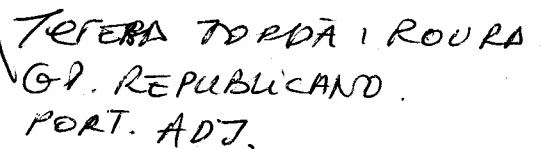 TERESA JORDÀ I ROURA
GP. REPUBLICANO.
PORT. ADJ.